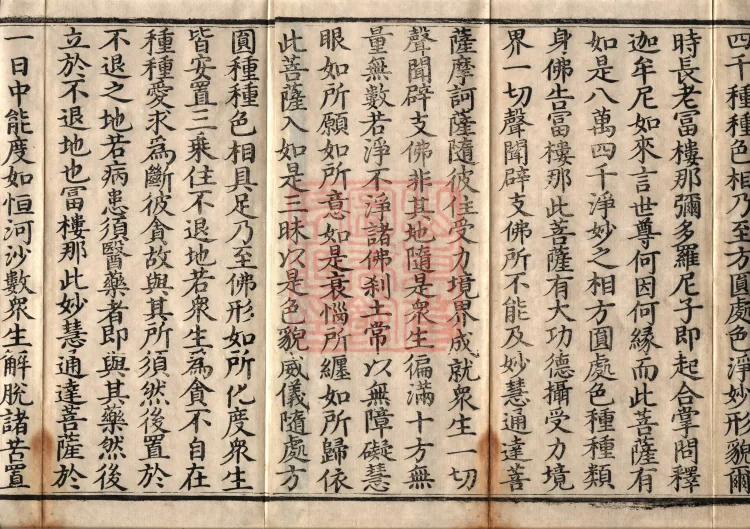 四千種種色相乃至方圓處色淨妙形貌爾
時長老冨樓那彌多羅尼子即起合掌問釋
迦牟尼如來言世尊何因何緣而此菩薩有
如是八萬四千淨妙之相方圓處色種種類
身佛告冨樓那此菩薩有大功德攝受力境
界一切聲聞辟支佛所不能及妙慧通達菩
薩摩訶薩隨彼住受力境界成就衆生一切
聲聞辟支佛非其地隨是衆生徧滿十方無
量無數若淨不淨諸佛刹土常以無障礙慧
眼如所願如所意如是衰惱所纏如所歸依
此菩薩入如是三昧以是色貌威儀隨處方
圓種種色相具足乃至佛形如所化度衆生
皆安置三乗住不退地若衆生爲貪不自在
種種愛求爲斷彼貪故與其所須然後置於
不退之地若病患須醫藥者即與其藥然後
立於不退地也冨樓那此妙慧通達菩薩於
一日中能度如恒河沙數衆生解脫諸苦置